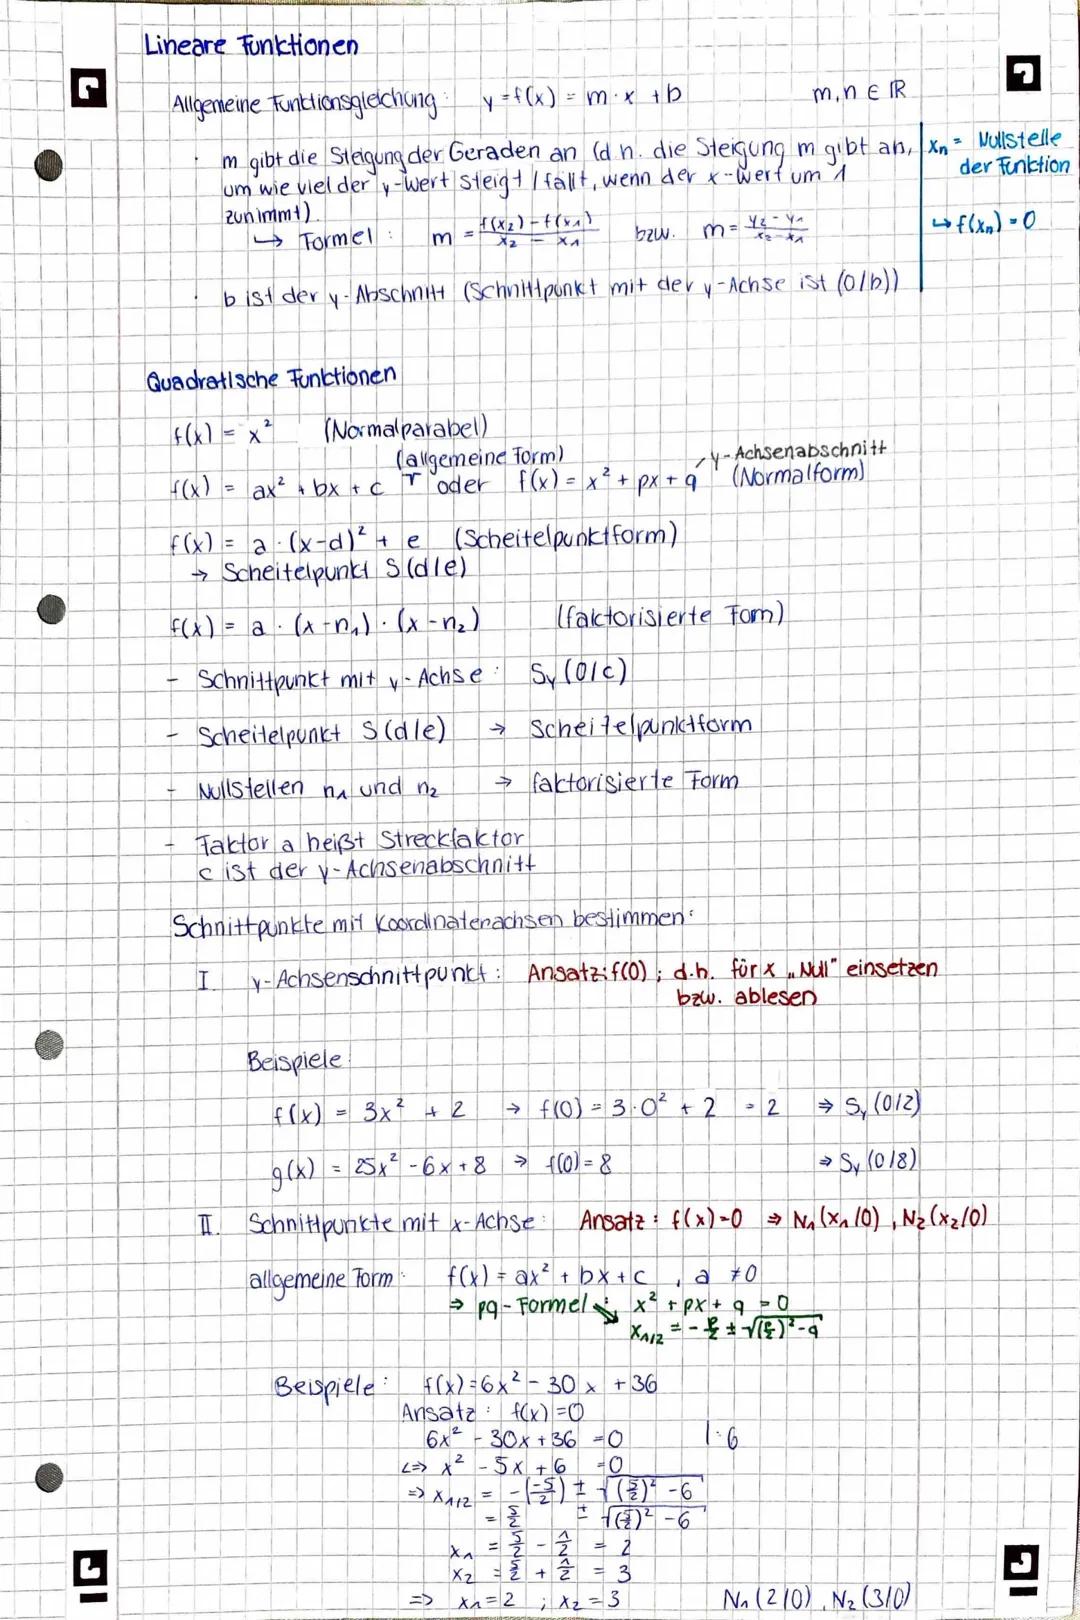 Lineare Funktionen
Allgemeine Funktionsgleichung: y = f(x) = m·x + b m,n ∈ ℝ
· m gibt die Steigung der Geraden an (d.h. die Steigung m gibt an,
um wie viel der y-Wert steigt / fällt, wenn der x-Wert um 1
zunimmt)
↳ Formel: m = (f(x₂) - f(x₁))/(x₂ - x₁) bzw. m = (y₂ - y₁)/(x₂ - x₁)
· b ist der y-Abschnitt (Schnittpunkt mit der y-Achse ist (0/b))
xₙ = Nullstelle
der Funktion
↳ f(xₙ) = 0
Quadratische Funktionen
f(x) = x² (Normalparabel)
(allgemeine Form)
f(x) = ax² + bx + c oder f(x) = x² + px + q (Normalform)
y-Achsenabschnitt
f(x) = a · (x-d)² + e (Scheitelpunktform)
→ Scheitelpunkt S(d/e)
f(x) = a · (x-n₁) · (x-n₂) (faktorisierte Form)
- Schnittpunkt mit y-Achse: Sy (0/c)
- Scheitelpunkt S(d/e) → Scheitelpunktform
- Nullstellen n₁ und n₂ → faktorisierte Form
- Faktor a heißt Streckfaktor
c ist der y-Achsenabschnitt
Schnittpunkte mit Koordinatenachsen bestimmen:
I. y-Achsenschnittpunkt: Ansatz: f(0) ; d.h. für x „Null" einsetzen
bzw. ablesen
Beispiele:
f(x) = 3x² + 2 → f(0) = 3·0² + 2 = 2 ⇒ Sy (0/2)
g(x) = 25x² - 6x + 8 → f(0) = 8 ⇒ Sy (0/8)
II. Schnittpunkte mit x-Achse: Ansatz: f(x) = 0 ⇒ N₁(x₁/0), N₂(x₂/0)
allgemeine Form: f(x) = ax² + bx + c , a ≠ 0
⇒ pq-Formel: x² + px + q = 0
x₁/₂ = -p/2 ± √((p/2)² - q)
Beispiele: f(x) = 6x² - 30x + 36
Ansatz: f(x) = 0
6x² - 30x + 36 = 0 |:6
⇔ x² - 5x + 6 = 0
⇒ x₁/₂ = -(-5/2) ± √((5/2)² - 6)
= 5/2 ± √((5/2)² - 6)
x₁ = 5/2 - 1/2 = 2
x₂ = 5/2 + 1/2 = 3
⇒ x₁ = 2 ; x₂ = 3 N₁(2/0), N₂(3/0)